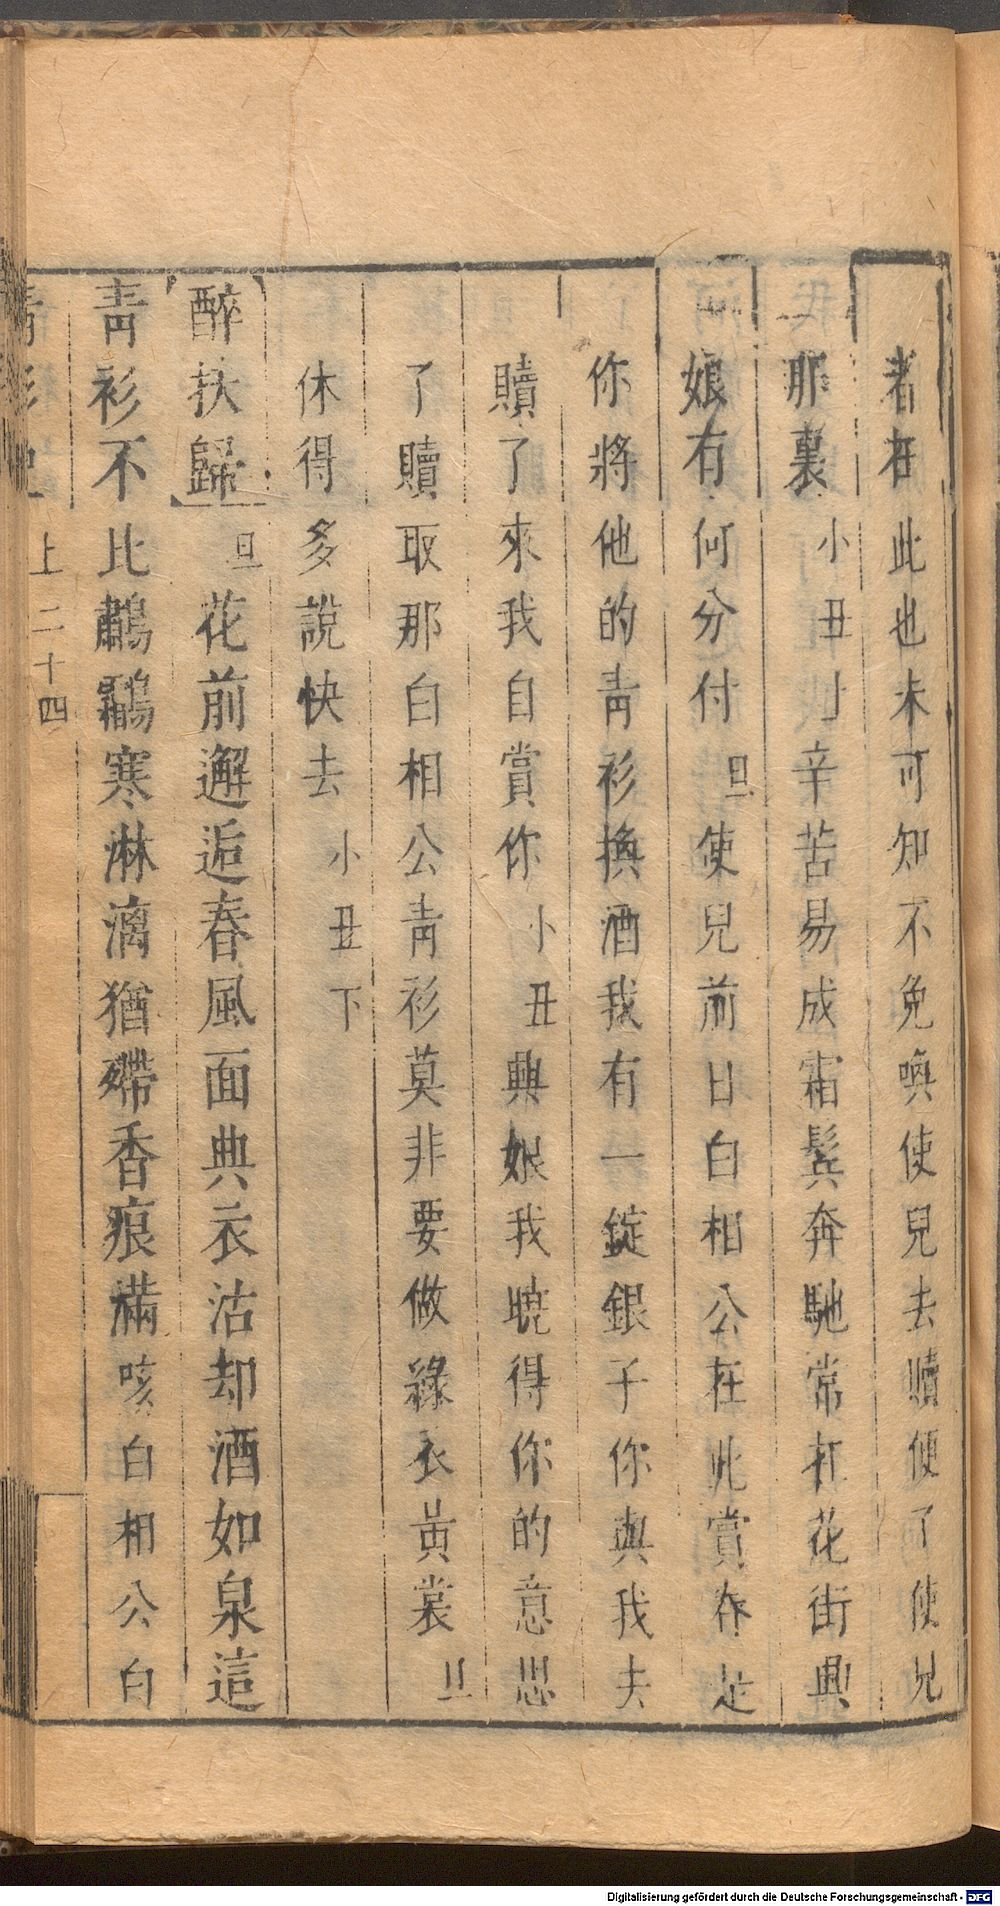 者在此也未可知不免喚使兒去贖便了使兒
那裏小丑上辛苦易成霜鬂奔馳常在花街興
娘有何分付旦使兒前日白相公在此賞春是
你將他的青衫換酒我有一錠銀子你與我去
贖了來我自賞你小丑興娘我曉得你的意思
了贖取那白相公青衫莫非要做綠衣黃裳旦
休得多說快去小丑下
醉扶歸旦花前邂逅春風面典衣沽却酒如泉這
青衫不比鷫鸘寒淋漓猶殢香痕滿咳白相公白
青衫記 上 二十四
Digitalisierung gefördert durch die Deutsche Forschungsgemeinschaft - DFG